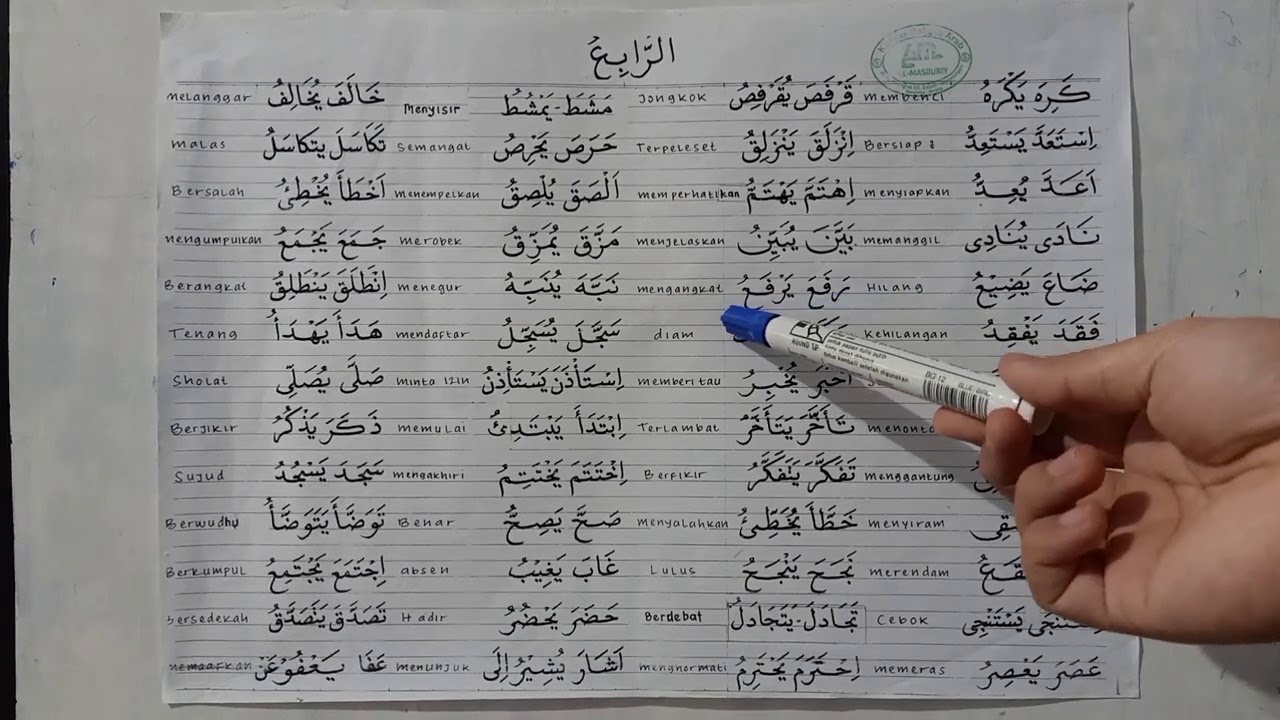 الرَّابِعُ
كَرِهَ يَكْرَهُ membenci قَرْفَصَ يُقَرْفِصُ Jongkok مَشَطَ - يَمْشُطُ Menyisir خَالَفَ يُخَالِفُ melanggar
اِسْتَعَدَّ يَسْتَعِدُّ Bersiap2 اِنْزَلَقَ يَنْزَلِقُ Terpeleset حَرَصَ يَحْرِصُ Semangat تَكَاسَلَ يتكاسَلُ Malas
اَعَدَّ يُعِدُّ menyiapkan اِهْتَمَّ يَهْتَمُّ memperhatikan اَلْصَقَ يُلْصِقُ menempelkan اَخْطَأَ يُخْطِئُ Bersalah
نَادَى يُنَادِى memanggil بَيَّنَ يُبَيِّنُ menjelaskan مَزَّقَ يُمَزِّقُ merobek جَمَعَ يَجْمَعُ mengumpulkan
ضَاعَ يَضِيْعُ Hilang رَفَعَ يَرْفَعُ mengangkat نَبَّهَ يُنَبِّهُ menegur اِنْطَلَقَ يَنْطَلِقُ Berangkat
فَقَدَ يَفْقِدُ Kehilangan diam سَجَّلَ يُسَجِّلُ mendaftar هَدَأَ يَهْدَأُ Tenang
اَخْبَرَ يُخْبِرُ memberi tau اِسْتَأْذَنَ يَسْتَأْذِنُ minta izin صَلَّى يُصَلِّى Sholat
تَأَخَّرَ يَتَأَخَّرُ Terlambat اِبْتَدَأَ يَبْتَدِئُ memulai ذَكَرَ يَذْكُرُ Berjikir
menggantung تَفَكَّرَ يَتَفَكَّرُ Berfikir اِخْتَتَمَ يَخْتَتِمُ mengakhiri سَجَدَ يَسْجُدُ Sujud
menyiram خَطَّأَ يُخَطِّئُ menyalahkan صَحَّ يَصِحُّ Benar تَوَضَّأَ يَتَوَضَّأُ Berwudhu
merendam نَجَحَ يَنْجَحُ Lulus غَابَ يَغِيْبُ absen اِجْتَمَعَ يَجْتَمِعُ Berkumpul
يَسْتَنْجِى Cebok تَجَادَلَ - يَتَجَادَلُ Berdebat حَضَرَ يَحْضُرُ Hadir تَصَدَّقَ يَتَصَدَّقُ Bersedekah
عَصَرَ يَعْصِرُ memeras اِحْتَرَمَ يَحْتَرِمُ menghormati اَشَارَ يُشِيْرُ اِلَى menunjuk عَفَا يَعْفُوْ عَنْ memaafkan